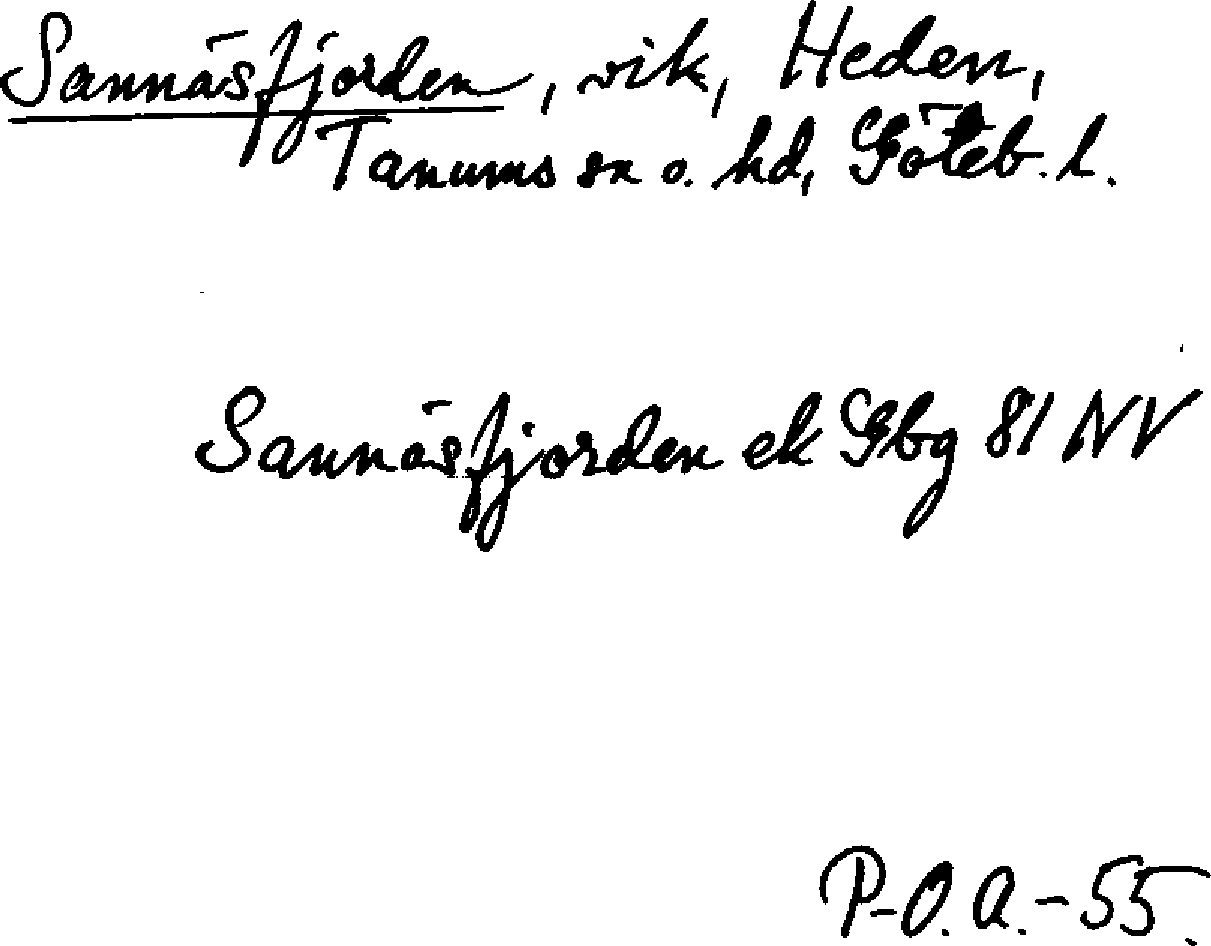 Sannäsfjorden, vik, Heden,
Tanums sn o. hd, Göteb. l.
Sannäsfjorden ek Gbg 81 NV
P-O. A. - 55.